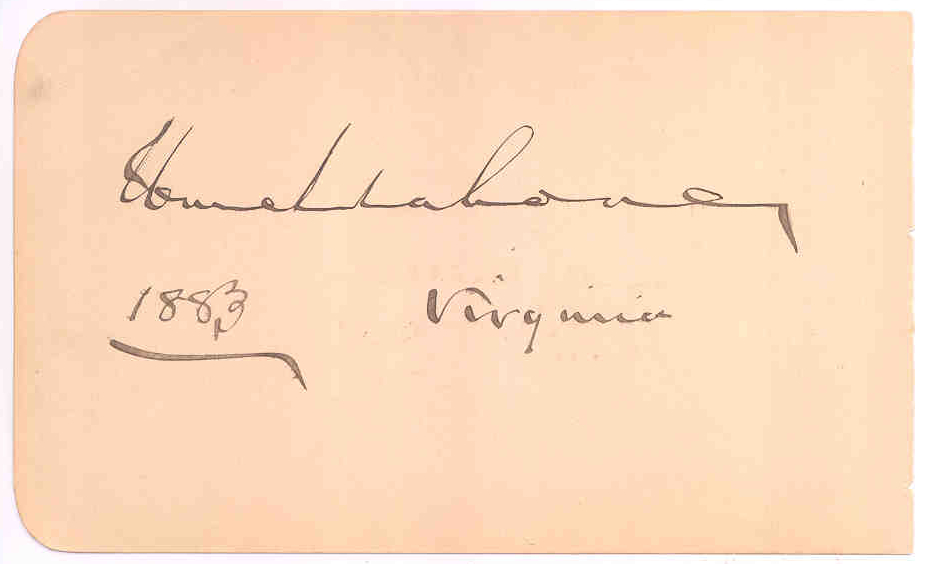 Mahone
1883 Virginia